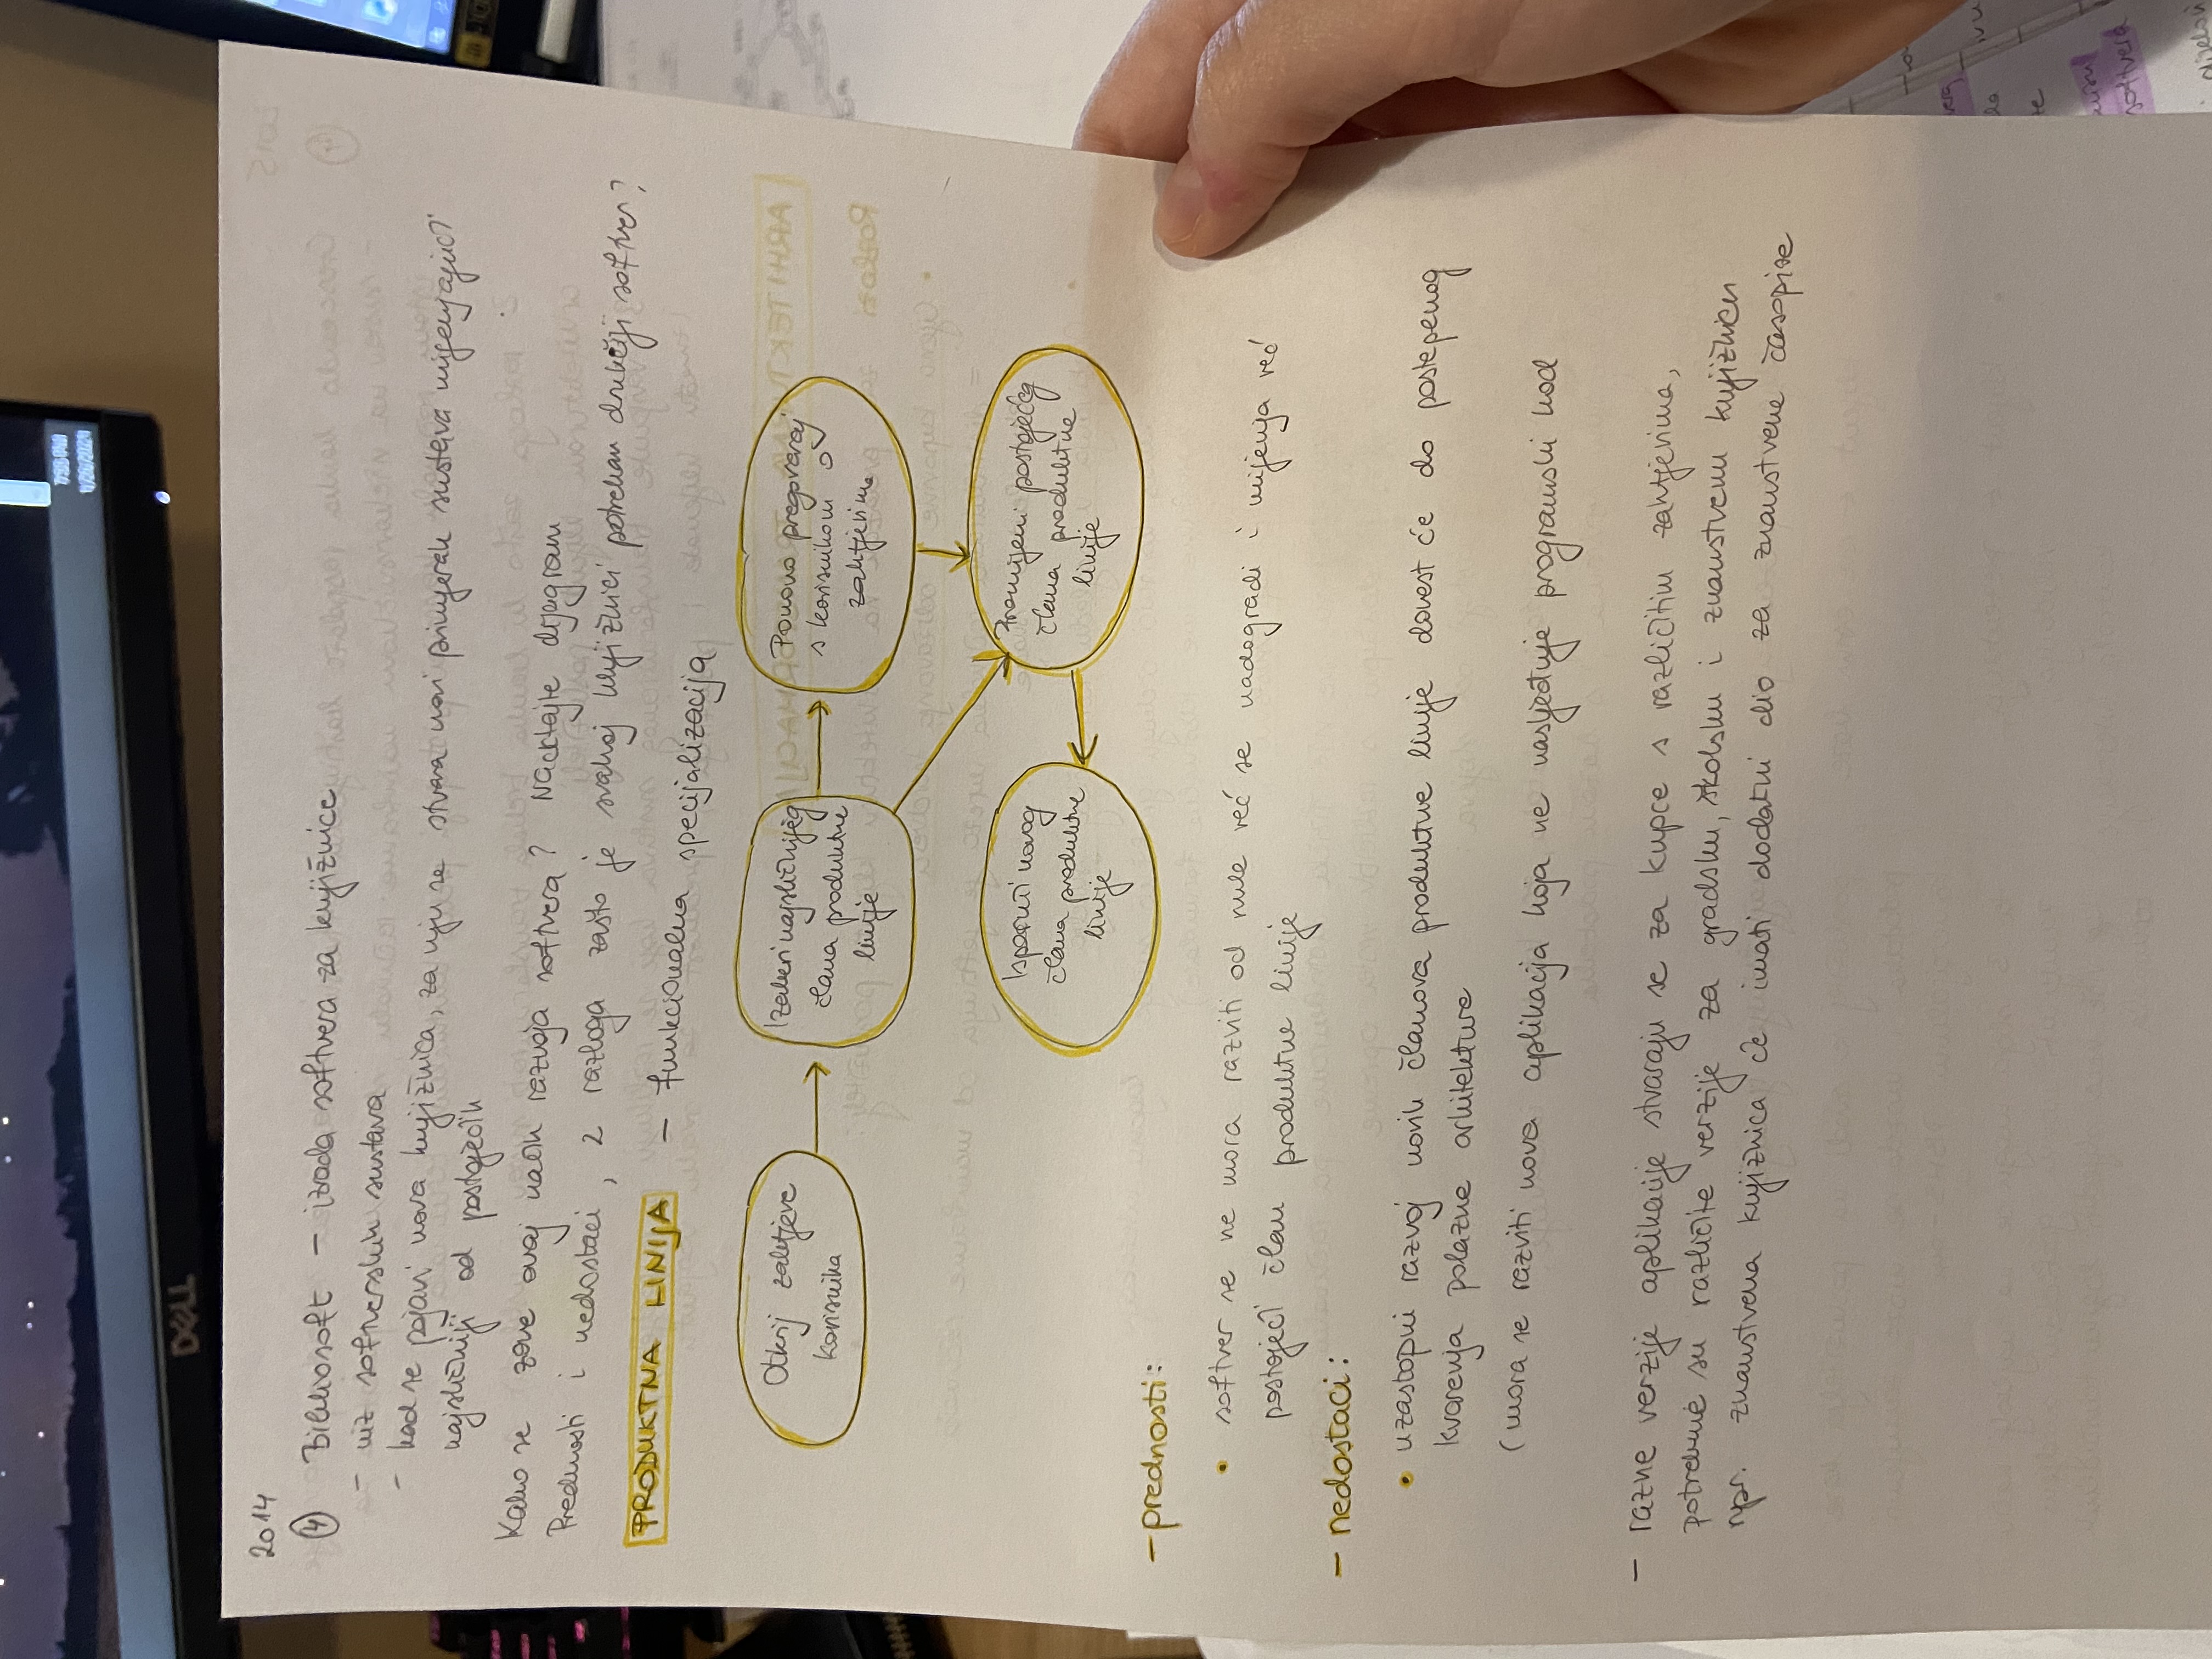 7:38 PM
DELL
2014
4 Bibliosoft – izrada softvera za knjižnice
– niz softverskih sustava
– kad se pojavi nova knjižnica, za nju se stvara novi primjerak sustava mijenjajući
najsličniji od postojećih
Kako se zove ovaj način razvoja softvera? Nacktajte dijagram
Prednosti i nedostaci, 2 razloga zašto je svakoj knjižnici potreban drukčiji softver?
PRODUKTNA LINIJA – funkcionalna specijalizacija
Otkrij zahtjeve
korisnika
Izaberi najsličnijeg
člana produktne
linije
Ponovo pregovaraj
s korisnikom o
zahtjevima
Isporuči novog
člana produktne
linije
Promijeni postojećeg
člana produktne
linije
– prednosti:
• softver se ne mora razviti od nule već se nadogradi i mijenja već
postojeći član produktne linije
– nedostaci:
• uzastopni razvoj novih članova produktne linije dovest će do postepenog
kvarenja polazne arhitekture
(mora se razviti nova aplikacija koja ne nasljeđuje programski kod
– razne verzije aplikacije stvaraju se za kupce s različitim zahtjevima,
potrebne su različite verzije za gradsku, školsku i znanstvenu knjižnicu
npr. znanstvena knjižnica će imati dodatni dio za znanstvene časopise
softvera